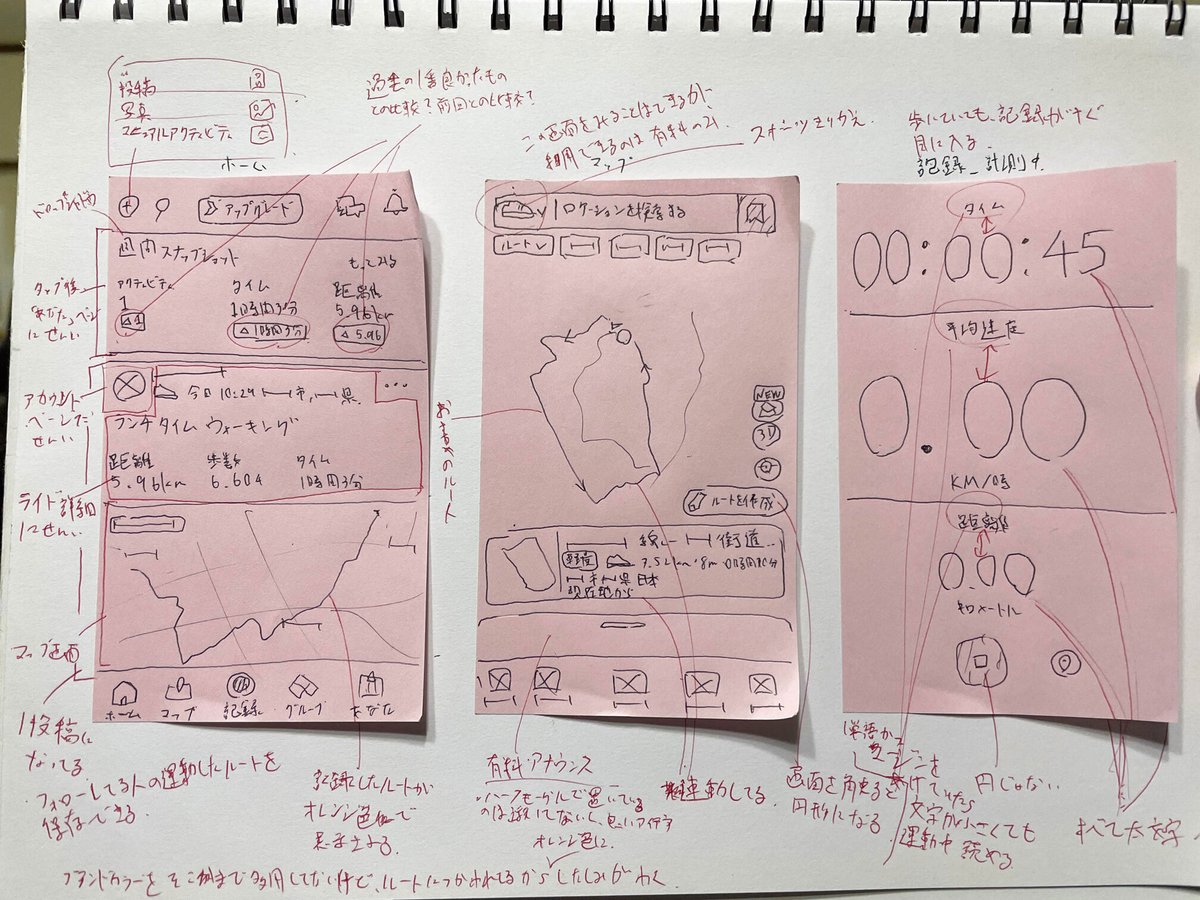 投稿
写真
マニュアルアクティビティ
ホーム
過去の1番良かったもの
との比較?前回との比較?
この画面をみることはできるが
利用できるのは有料のみ.
マップ
スポーツきりかえ
歩いていても、記録がすぐ
目に入る.
記録_計測中
アップグレード
週間スナップショット
もっとみる
アクティビティ
タイム
距離
1
1時間3分
5.96km
△1
△1時間3分
△5.96
タップ後
「あなた」ページ
にせんい
アカウント
ページにだ
せんい
今日 10:29
市,
県.
ランチタイム ウォーキング
距離
歩数
タイム
5.96km
6.604
1時間3分
ライド詳細
にせんい
マップ画面
ホーム
マップ
記録
グループ
あなた
ロケーションを検索する
ルート
NEW
3D
ルートを作成
おすすめのルート
線
街道...
軽度
7.52km
8m
市
県 日本
現在地から
タイム
00:00:45
平均速度
0.00
KM/時
距離
0.00
キロメートル
1投稿に
なってる
・フォローしてる人の運動したルートを
保存できる.
記録したルートが
オレンジ色で
表示される.
有料アナウンス
ハーフモーダルで置いている
オレンジ色に.
連動してる.
画面を
円形になる
文字が小さくても
運動中 読める
円じゃない
すべて太文字
ブランドカラーをそこまで多用してないけど、ルートにつかわれてるからしたしみがわく